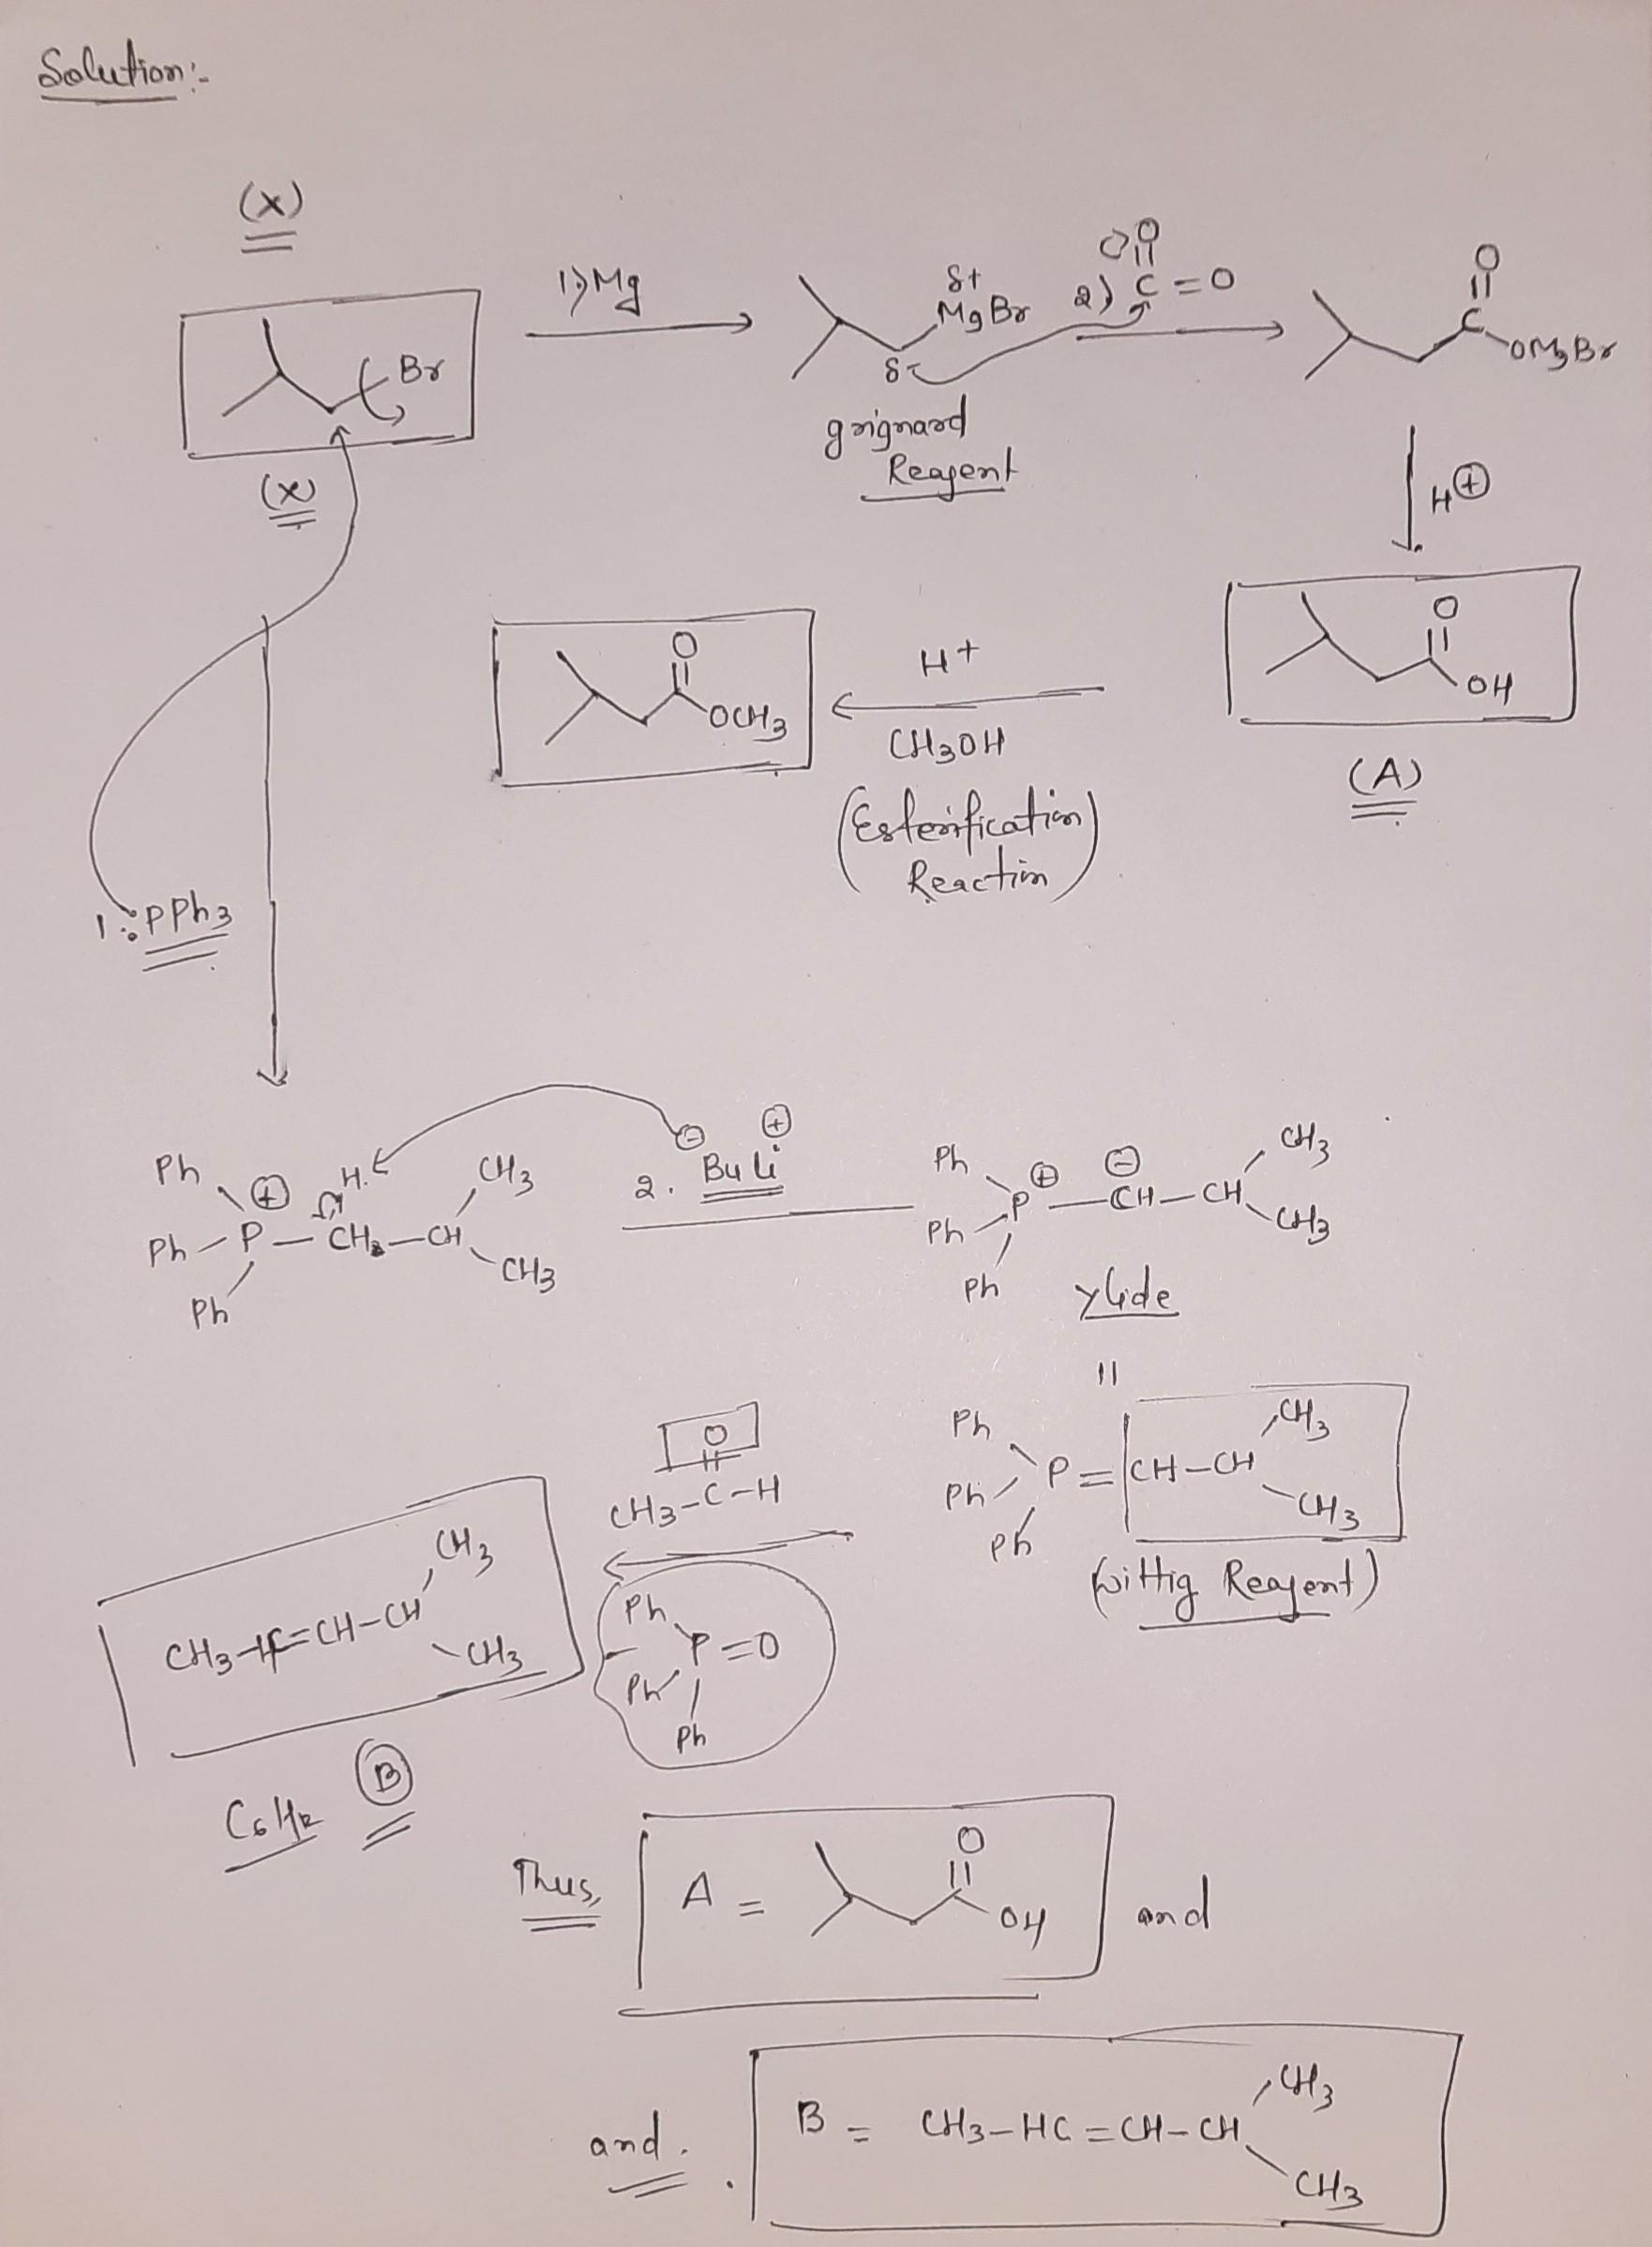 Solution:-
(X)
Br
(X)
1) Mg
δ+
MgBr
δ-
grignard
Reagent
O
2) C=O
O
C
OMgBr
H⊕
O
OH
(A)
H+
CH3OH
(Esterification
Reaction)
O
OCH3
1. :PPh3
Ph
H
CH3
Ph-P⊕-CH2-CH
CH3
Ph
⊖ ⊕
2. BuLi
Ph
CH3
P⊕-⊖CH-CH
Ph
CH3
Ph
Ylide
||
Ph
CH3
P=CH-CH
Ph
CH3
Ph
(Wittig Reagent)
O
CH3-C-H
Ph
P=O
Ph
Ph
CH3
CH3-HC=CH-CH
CH3
C6H12
B
Thus,
A =
O
OH
and
and.
CH3
B = CH3-HC=CH-CH
CH3